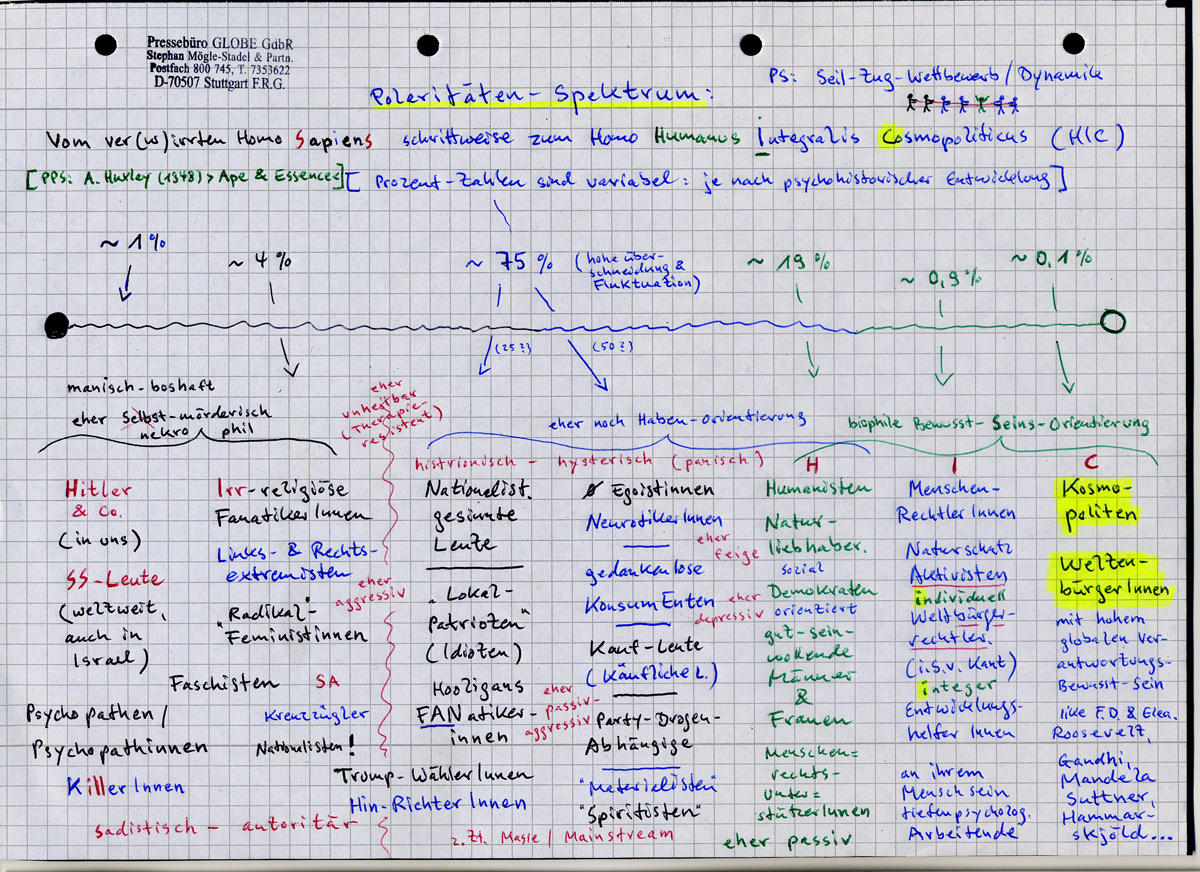 Pressebüro GLOBE GdbR
Stephan Mögle-Stadel & Partn.
Postfach 800 745, T. 7353622
D-70507 Stuttgart F.R.G.
PS: Seil-Zug-Wettbewerb/Dynamik
Polaritäten-Spektrum:
Vom ver(w)irrten Homo Sapiens schrittweise zum Homo Humanus Integralis Cosmopoliticus (HIC)
[PPS: A. Huxley (1948) > Ape & Essence<] [Prozent-Zahlen sind variabel: je nach psychohistorischer Entwicklung]
~ 1%
~ 4%
~ 75% (hohe über-
schneidung &
Fluktuation)
~ 19%
~ 0,9%
~ 0,1%
(25?)
(50?)
manisch-boshaft
eher Selbst-mörderisch
nekro phil
eher
unheilbar
(Therapie-
resistent)
eher noch Haben-Orientierung
biophile Bewusst-Seins-Orientierung
histrionisch - hysterisch (panisch)
H
I
C
Hitler
& Co.
(in uns)
SS-Leute
(weltweit,
auch in
Israel)
Psychopathen/
Psychopathinnen
KillerInnen
Irr-religiöse
FanatikerInnen
Links- & Rechts-
extremisten
"Radikal"-
Feministinnen
Faschisten SA
Kreuzzügler
Nationalisten!
sadistisch - autoritär
eher
aggressiv
Nationalist.
gesinnte
Leute
"Lokal-
Patrioten"
(Idioten)
Hooligans
FANatiker-
innen
eher
passiv-
aggressiv
Trump-WählerInnen
Hin-RichterInnen
z. Zt. Masse / Mainstream
Ø Egoistinnen
NeurotikerInnen
gedankenlose
KonsumEnten
Kauf-Leute
(Käufliche L.)
Party-Drogen-
Abhängige
"Materialisten"
"Spiritisten"
eher
feige
eher
depressiv
Humanisten
Natur-
liebhaber.
sozial
Demokraten
orientiert
gut-sein-
wollende
Männer
&
Frauen
Menschen=
rechts-
unter=
stützerInnen
eher passiv
Menschen-
RechtlerInnen
Naturschutz
Aktivisten
individuell
Weltbürger-
rechtler.
(i.S.v. Kant)
integer
Entwicklungs-
helferInnen
an ihrem
Menschsein
tiefenpsycholog.
Arbeitende
Kosmo-
politen
Welten-
bürgerInnen
mit hohem
globalen Ver-
antwortungs-
Bewusst-Sein
like F.D. & Elea.
Roosevelt,
Gandhi,
Mandela
Suttner,
Hammar-
skjöld...